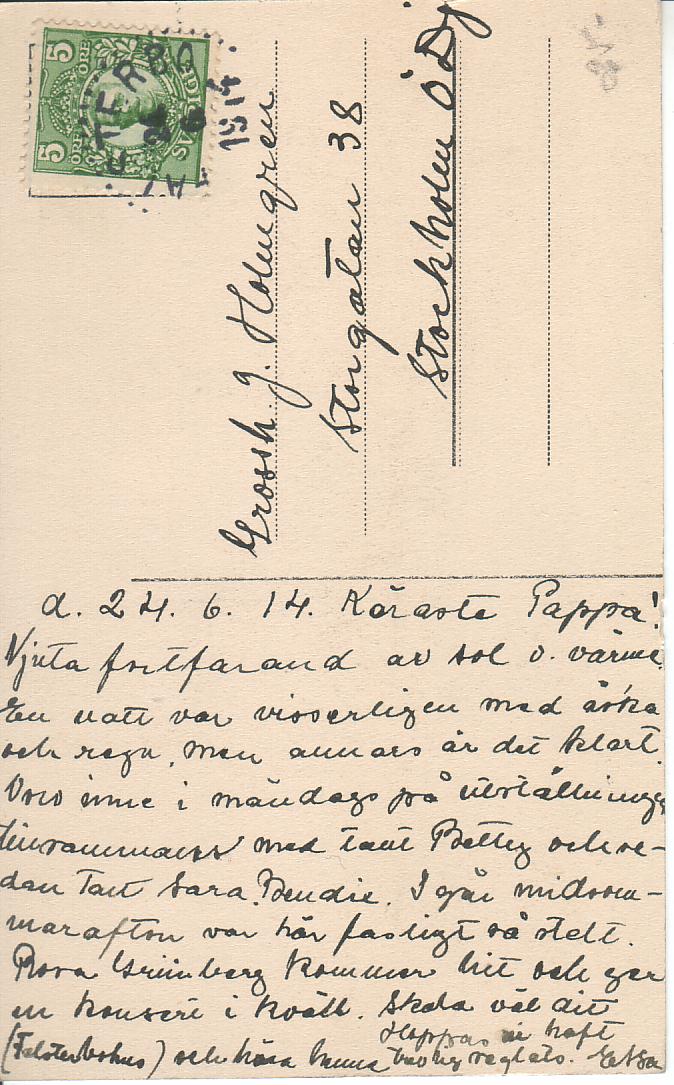 5 ÖRE
5 ÖRE
FALSTERBO
24 6
1914
Grossh. J. Holmgren
Storgatan 38
Stockholm Ö
d. 24. 6. 14. Käraste Pappa!
Njuta fortfarand av sol o. värme.
En natt var visserligen med åska
och regn, men annars är det klart.
Voro inne i måndags på utställningen
tillsammans med tant Betty och se-
dan Tant Sara Bendie. I går midsom-
marafton var här fasligt så stelt.
Rosa Grünberg kommer hit och ger
en konsert i kväll. Skola väl dit
(Falsterbohus) och höra henne
Hoppas ni haft